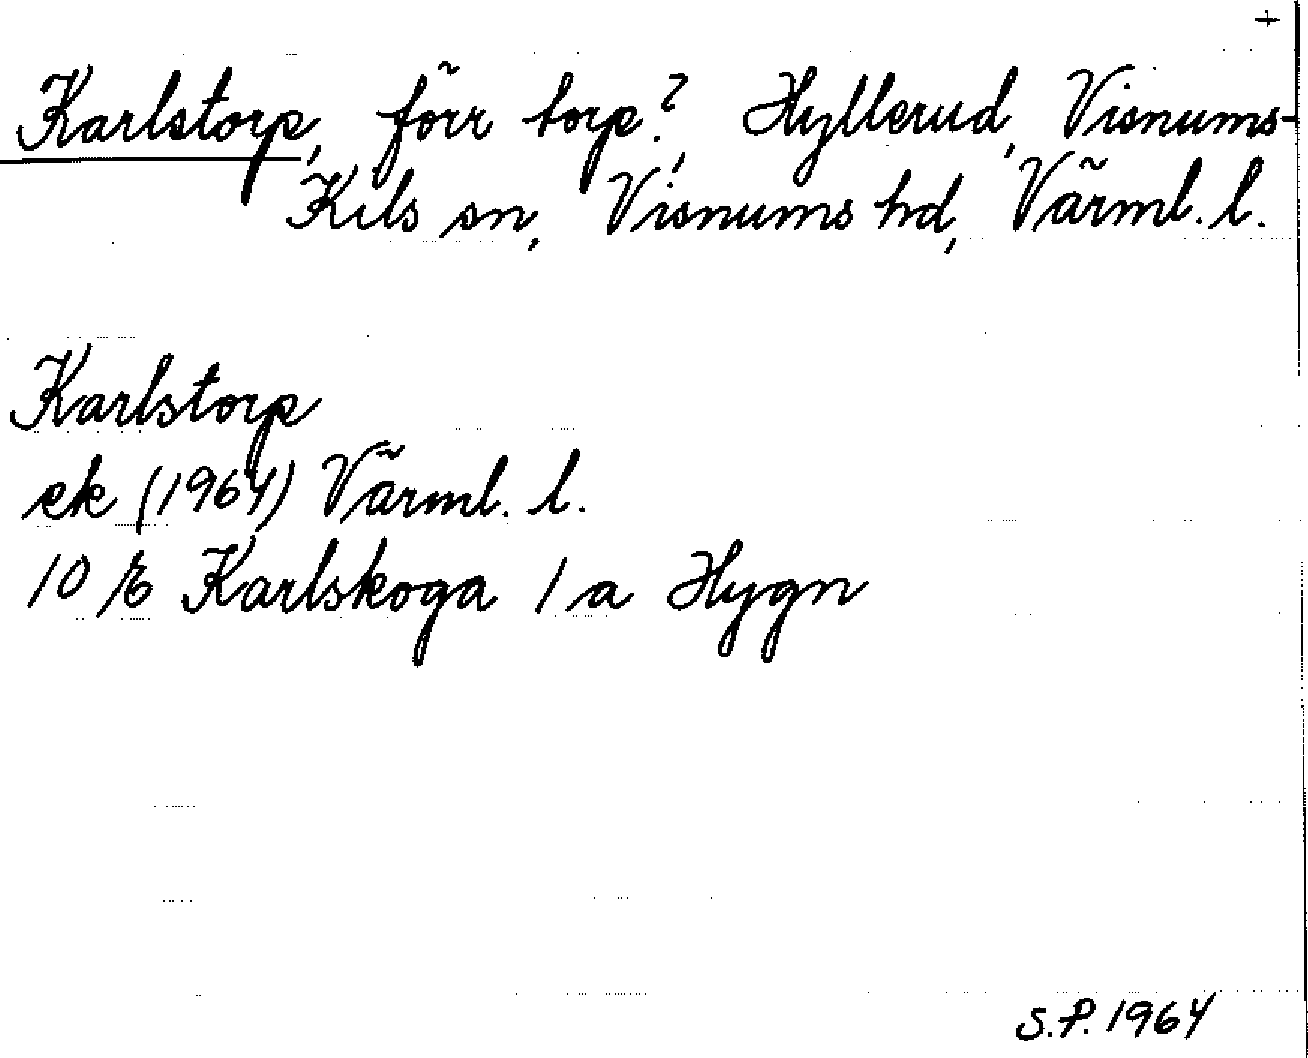 +
Karlstorp, förr torp?, Hyllerud, Visnums-
Kils sn, Visnums hd, Värml. l.
Karlstorp
ek (1964) Värml. l.
10 E Karlskoga 1 a Hygn
S.P. 1964